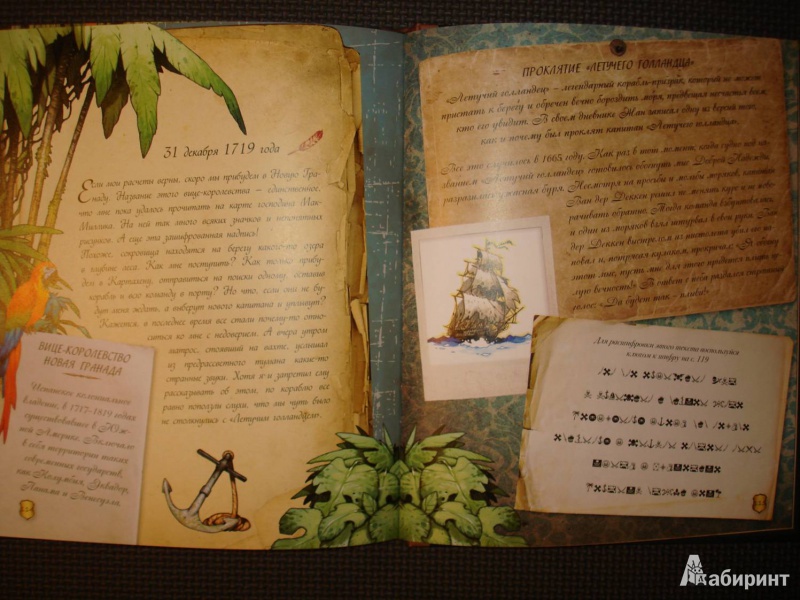 31 декабря 1719 года
Если мои расчеты верны, скоро мы прибудем в Новую Гра-
наду. Название этого вице-королевства – единственное,
что мне пока удалось прочитать на карте господина Мак-
Миллина. На ней так много всяких значков и непонятных
рисунков. А еще эта зашифрованная надпись!
Похоже, сокровища находятся на берегу какого-то озера
в глубине леса. Как мне поступить? Как только прибу-
дем в Картахену, отправиться на поиски одному, оставив
корабль и всю команду в порту? Но что, если они не бу-
дут меня ждать, а выберут нового капитана и уплывут?
Кажется, в последнее время все стали почему-то отно-
ситься ко мне с недоверием. А вчера утром
матрос, стоявший на вахте, услышал
из предрассветного тумана какие-то
странные звуки. Хотя я и запретил ему
рассказывать об этом, по кораблю все
равно поползли слухи, что мы чуть было
не столкнулись с «Летучим голландцем».
ВИЦЕ-КОРОЛЕВСТВО
НОВАЯ ГРАНАДА
Испанское колониальное
владение, в 1717–1819 годах
существовавшее в Юж-
ной Америке. Включало
в себя территории таких
современных государств,
как Колумбия, Эквадор,
Панама и Венесуэла.
ПРОКЛЯТИЕ «ЛЕТУЧЕГО ГОЛЛАНДЦА»
«Летучий голландец» – легендарный корабль-призрак, который не может
пристать к берегу и обречен вечно бороздить моря, предвещая несчастья всем,
кто его увидит. В своем дневнике Жан записал одну из версий того,
как и почему был проклят капитан «Летучего голландца».
Все это случилось в 1665 году. Как раз в тот момент, когда судно под на-
званием «Летучий голландец» готовилось обогнуть мыс Доброй Надежды,
разразилась ужасная буря. Несмотря на просьбы и мольбы моряков, капитан
Ван дер Деккен решил не менять курс и не пово-
рачивать обратно. Тогда команда взбунтовалась,
и один из моряков взял штурвал в свои руки. Ван
дер Деккен выстрелом из пистолета убил его
для этого придется плыть це-
лую вечность! В ответ с неба раздался
голос: «Да будет так – плыви!»
Для расшифровки этого текста воспользуйся
ключом к шифру на с. 119
Лабиринт